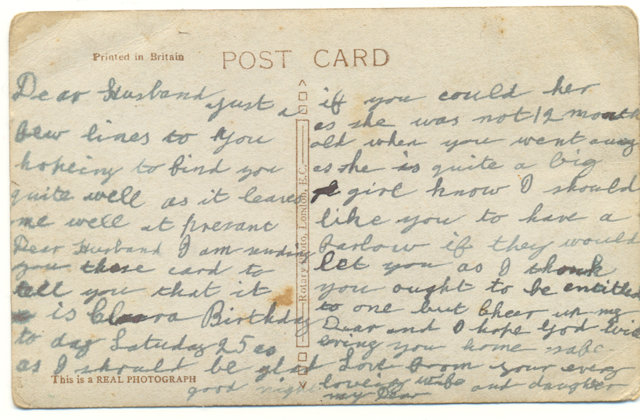 Printed in Britain
POST CARD
Dear Husband just a
few lines to you
hopeiny to find you
quite well as it leaves
me well at presant
Dear Husband I am sending
you these card to
tell you that it
is Clara Birthday
to day Saturday 25 as
as I should be glad
This is a REAL PHOTOGRAPH
Rotary Photo, London, E.C.
if you could her
as she was not 12 month
old when you went away
as she is quite a big
girl know I should
like you to have a
farlow if they would
let you as I thonk
you ought to be entitled
to one but Cheer up my
Dear and I hope God will
bring you home safe
Love from your ever
good night loveing wife and daughter
my Dear